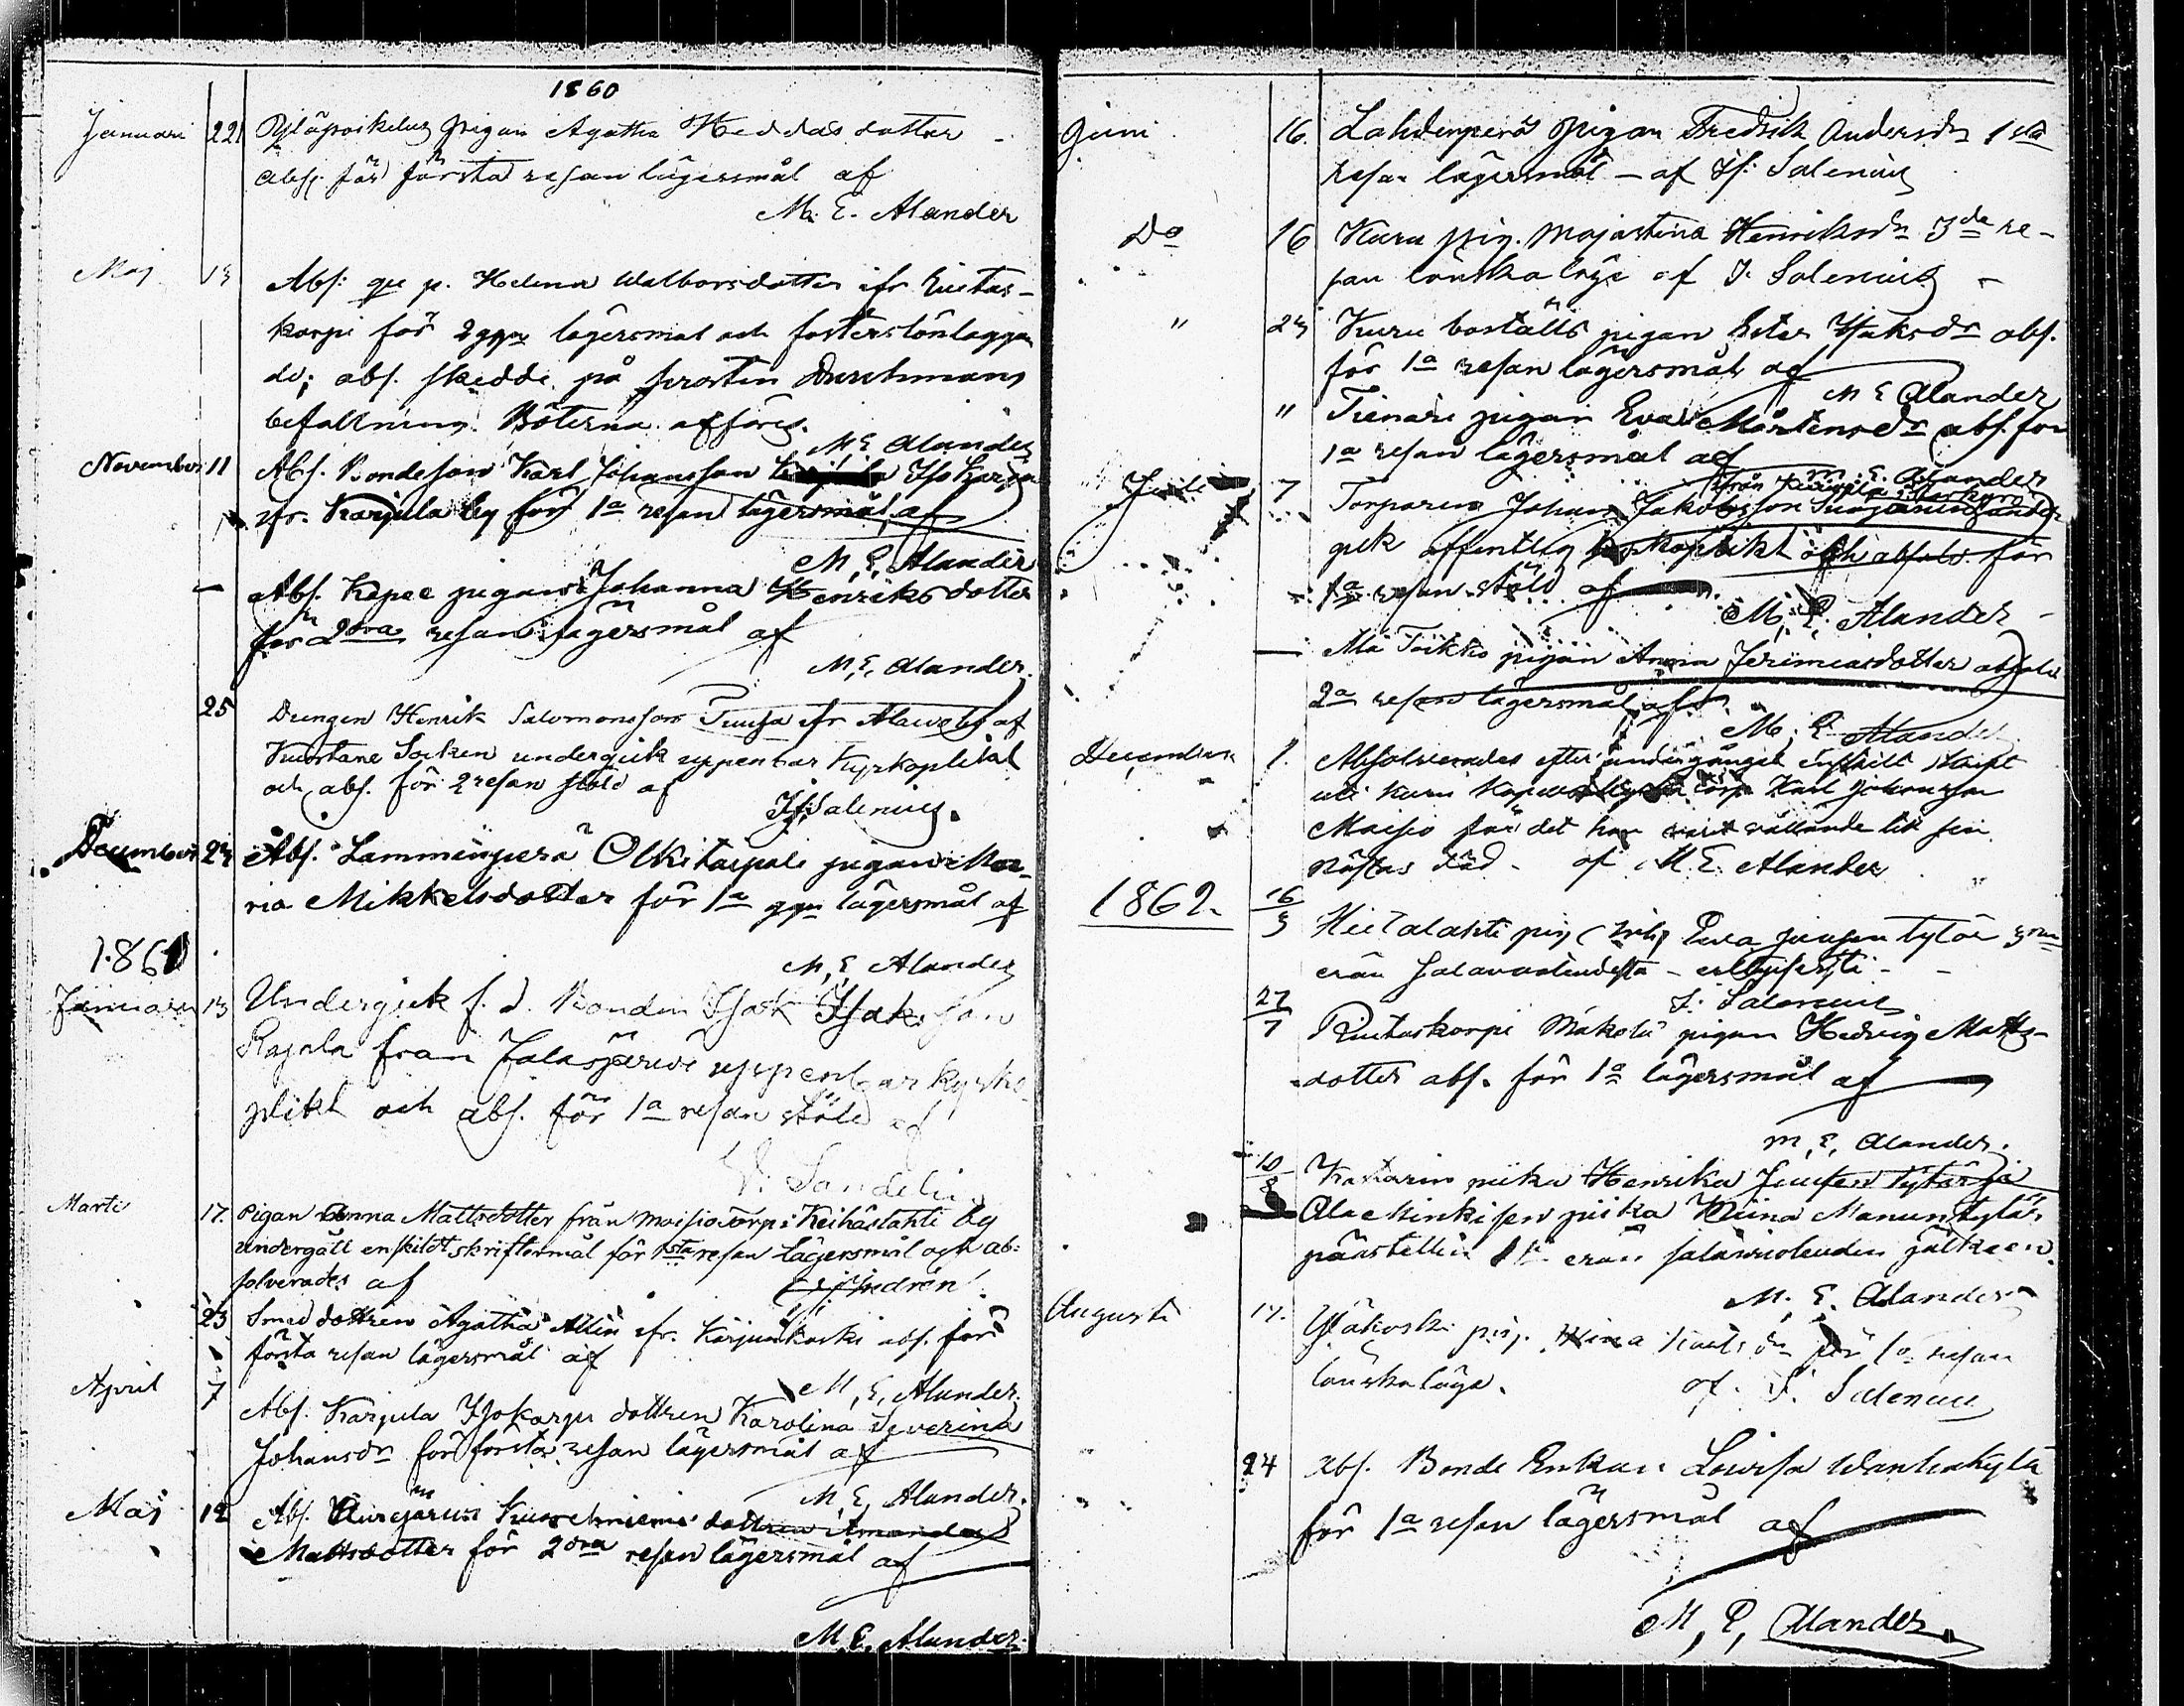 1860
Januari 22 pigan Agatha Heddas dotter
abs. för första resan lägersmål af
M. E. Alander
Maj 13 Abs: p. Helena Walborsdotter ifr Rintas-
korpi för 2 ggr lägersmål och fosterslönläggan
de; abs. skedde på prosten Durchmans
befallning. Böterna afföres.
M E Alander
November 11 Abs. Bondeson Karl Johansson Iso Karju
ifr. Karjula by för 1a resan lägersmål, af
M, E, Alander
— Abs. Kepee pigan Johanna Henriks dotter
för 2dra resan lägersmål af
M, E, Alander.
25 Drengen Henrik Salomonsson ifr Alawo by af
Kuortane Socken undergick uppenbar Kyrkoplikt
och abs. för 2 resan stöld af
If. Salenius.
December 23 Abs. Lamminperä Olkitaipale pigan Ma-
ria Mikkelsdotter för 1a ggn lägersmål af
M, E, Alander
1861
Januari 13 Undergick f. d. Bonden Isak Isaksson
Rajala från Jalasjärwi uppenbar kyrko-
plikt och abs. för 1a resan stöld af
V. Sandelin
Marti 17. Pigan Anna Mattsdotter från Moisio Torp i Keihäslahti by
undergått enskildt skriftermål för 1sta resan lägersmål och ab-
solverades af
23 Smed dottren Agatha Allén ifr. Karjunkoski abs. för
första resan lägersmål af
M, E, Alander.
April 7 Abs. Karjula Isokarju dottren Karolina Severina
Johansdr för första resan lägersmål af
M, E, Alander.
Maj 12 Abs. Aurejärwi dottren Amanda
Mattsdotter för 2dra resan lägersmål af
M, E, Alander.
Juni 16. Lahdenperä pigan Fredrik Andersdr 1sta
resan lägersmål – af If. Salenius
Do 16 Kuru pig. Majastina Henriksdr 3de re-
san lönskaläge af I. Salenius
" 23 Kuru boställs pigan Ester Isaksdr abs.
för 1a resan lägersmål af
M E Alander
" Tienari pigan Eva Mårtensdr abs. för
1a resan lägersmål af
M. E. Alander
Juli 7 Torparen Johan Jakobsson från
gick offentlig kyrkoplikt och absolv. för
1a resan stöld af
M, E, Alander
— Ala Toikko pigan Anna Jeremiasdotter absolv
2a resan lägersmål af
M. E. Alander
December 1. Absolverades efter undergånget enskilt skript
uti Kuru Kapell Karl Johansson
Moisio för det han varit vållande till sin
nästas död. af M. E. Alander
1862.
16/3 Hietalahti pig Eeva tytär
erän salavuoteudesta
I. Salenius
27/7 Rintaskorpi Mäkelä pigan Hedvig Matts-
dotter abs. för 1a lägersmål af
M, E, Alander.
10/8 piika Henrika Juusen tytär ja
Ala Minkisen piika Kiina Manun tytär
päästettiin 1sen erän salavuoteuden jälkeen.
M. E. Alander
Augusti 17. Yläkoski pig. för 1a resan
lönskaläge. af. I. Salenius
24 Abs. Bonde Enkan Lowisa Wanhakylä
för 1a resan lägersmål af
M, E, Alander.